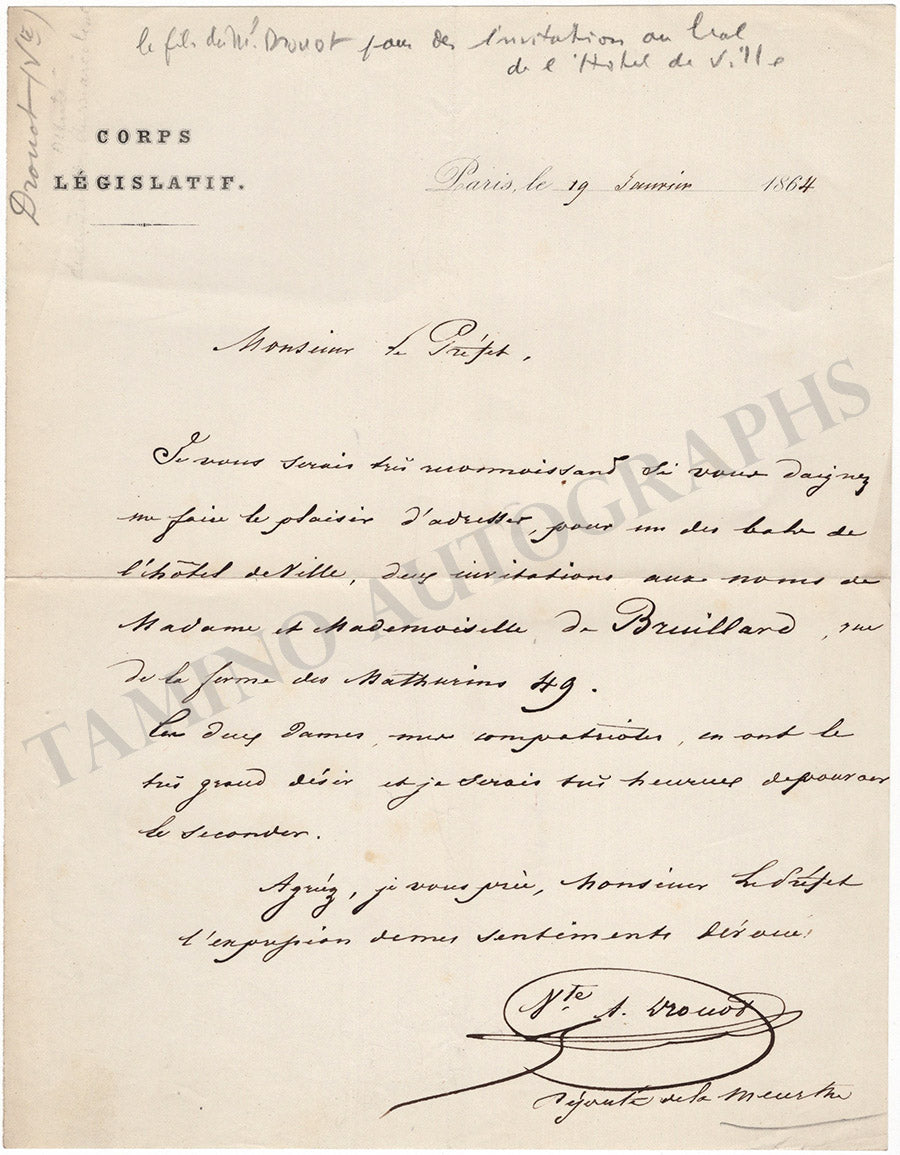 le fils de Mr. Drouot pour des invitation au bal
de l'Hôtel de Ville
Drouot (Vte)
CORPS
LÉGISLATIF.
Paris, le 19 Janvier 1864
Monsieur le Préfet,
Je vous serais très reconnoissant si vous daignez
me faire le plaisir d'adresser, pour un des bals de
l'hôtel de Ville, deux invitations aux noms de
Madame et Mademoiselle de Bruillard, rue
de la ferme des Mathurins 49.
Ces deux Dames, mes compatriotes, en ont le
très grand désir et je serais très heureux de pouvoir
le seconder.
Agréez, je vous prie, Monsieur Le Préfet
l'expression de mes sentiments dévoués
Vte A. Drouot
Député de la Meurthe
TAMINO AUTOGRAPHS